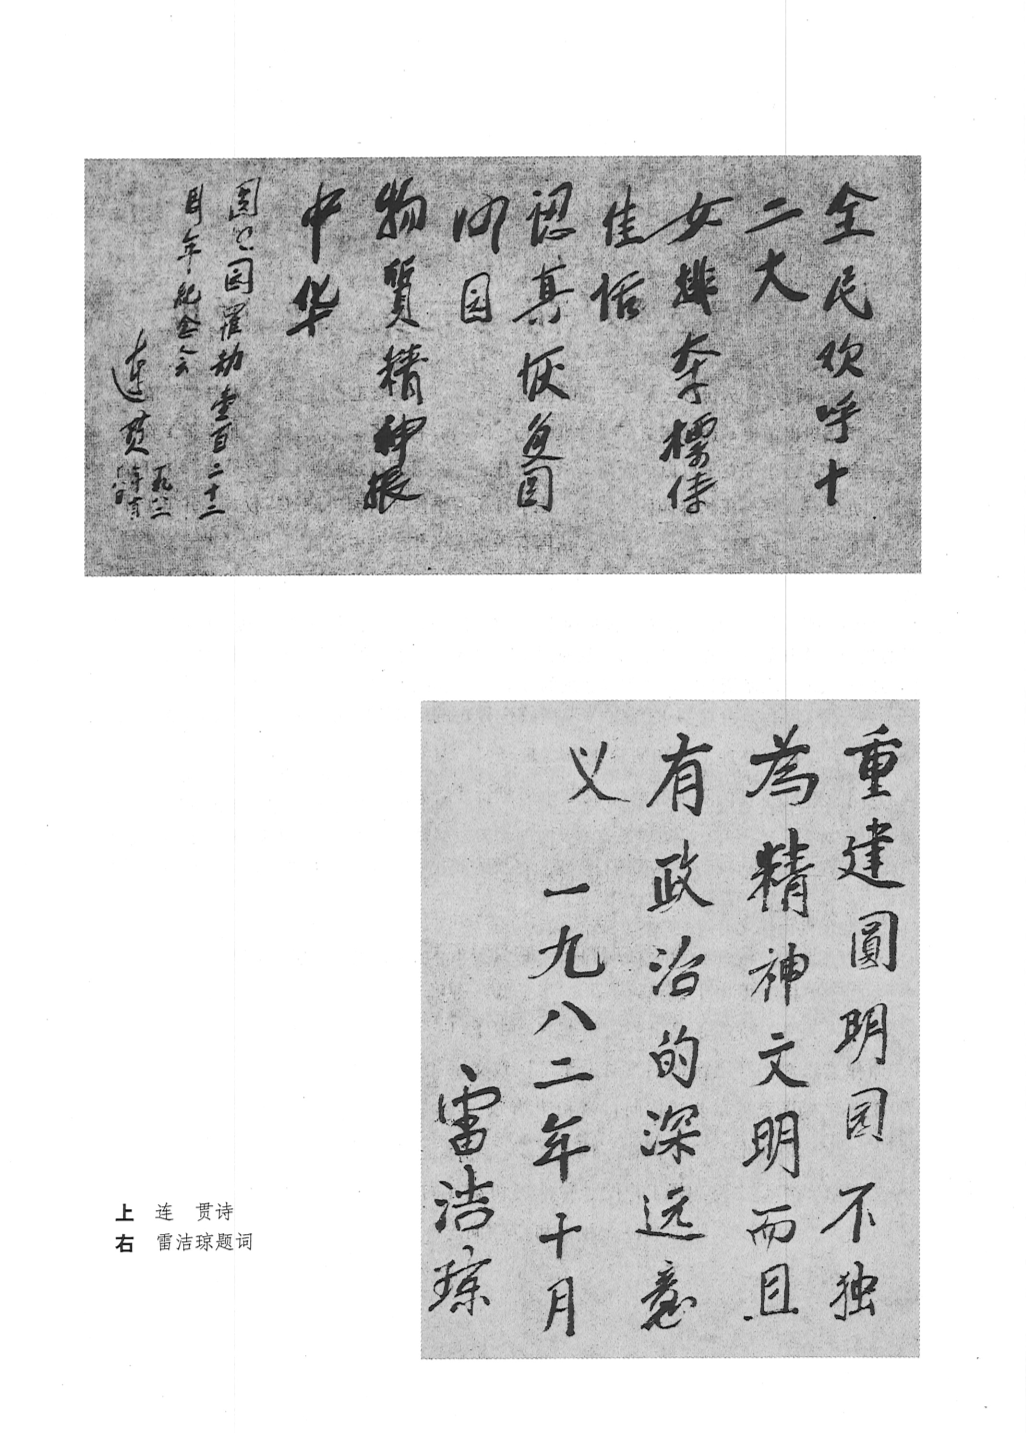 全民欢呼十
二大
女排夺标传
佳话
認真恢复圆
明园
物質精神振
中华
圆明园罹劫壹百二十二
周年纪念会
连贯
一九八二
重建圓明园不独
為精神文明而且
有政治的深远意
义
一九八二年十月
雷洁琼
上 连 贯诗
右 雷洁琼题词